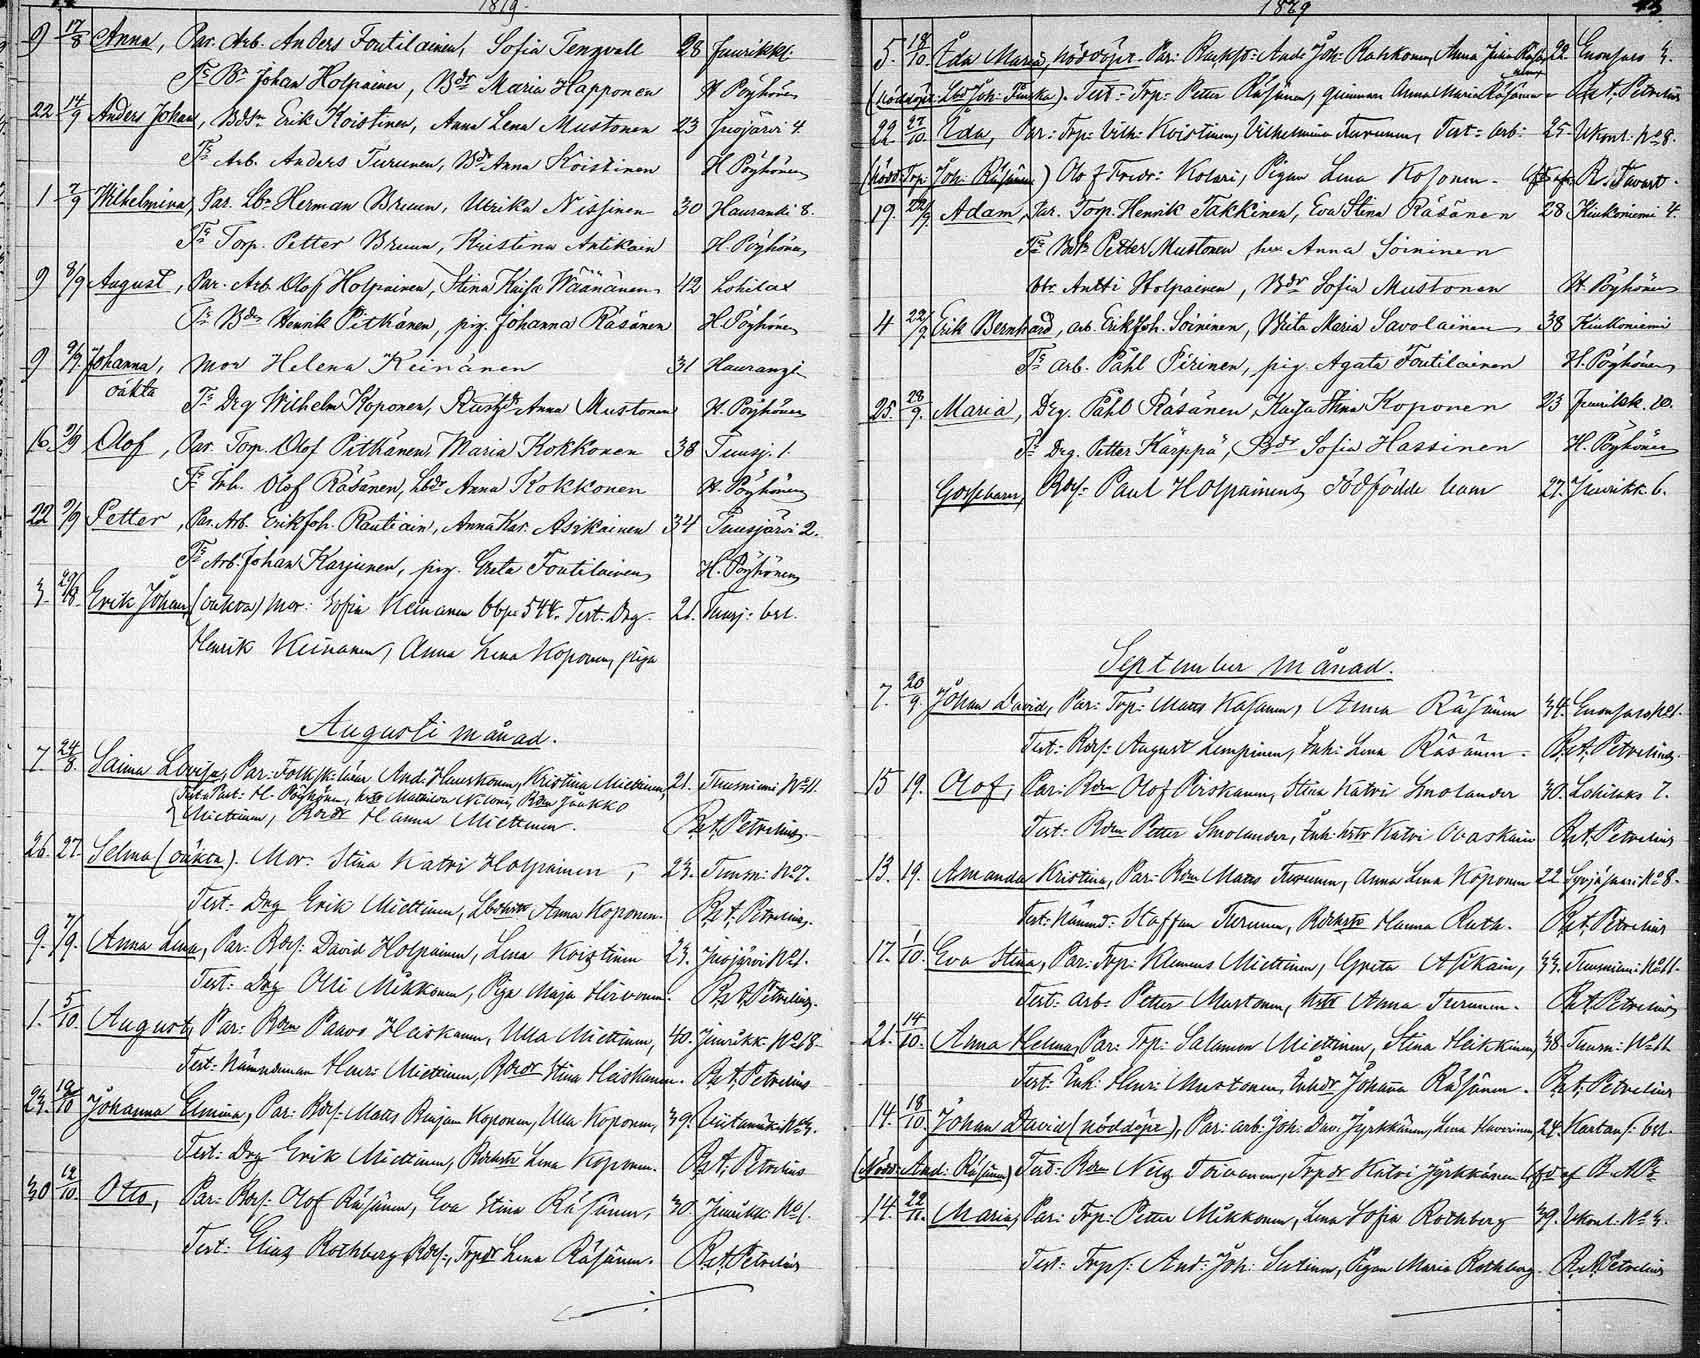 1879.
9 17/8 Anna, Par. Arb. Anders Foutilainen, Sofia Tengvall 28 Juurikkl.
Ts Br Johan Holpainen, Bdr Maria Happonen H Pöyhönen
22 14/9 Anders Johan, Bdsn Erik Koistinen, Anna Lena Mustonen 23 Juojärvi 4.
Ts Arb. Anders Turunen, Bdr Anna Koistinen H Pöyhönen
1 7/9 Wilhelmina, Par. Lbr Herman Bruun, Ulrika Nissinen 30 Hauranki 8.
Ts Torp. Petter Bruun, Kristina Antikain H. Pöyhönen
9 8/9 August, Par. Arb. Olof Holpainen, Stina Kaisa Wäänänen 42 Lohilax
Ts Bdn Henrik Pitkänen, pig. Johanna Räsänen H. Pöyhönen
9 9/9 Johanna, mor Helena Keinänen 31 Haurangi
oäkta Ts Drg Wilhelm Koponen, Anna Mustonen H. Pöyhönen
16 9/9 Olof, Par. Torp. Olof Pitkänen, Maria Kokkonen 38 Tuusj. 1.
Ts Inh. Olof Räsänen, Lbdr Anna Kokkonen H. Pöyhönen
22 9/9 Petter, Par. Arb. Erik Joh. Rautiain, Anna Kar. Asikainen 34 Tuusjärvi 2.
Ts Arb. Johan Karjunen, pig. Greta Foutilainen H. Pöyhönen
3. 29/8. Erik Johan, (oäkta) Mor: Sofia Keinänen bbpe 544. Test. Drg. 21. Tuusj: bst.
Henrik Keinänen, Anna Lena Koponen, piga
Augusti månad.
7 24/8. Saima Lovisa, Par: Folksk:lärar And: Hauskonen, Kristina Miettinen, 21. Tuusniemi No 11.
Test: Past: H. Pöyhönen, hstr Mathilda Nilonis, Bdn Jaakko
Miettinen, Bdr Hanna Miettinen. R:A:Petrelius
26. 27. Selma (oäkta). Mor: Stina Katri Holpainen, 23. Tuusn: No 7.
Test: Drg Erik Miettinen, Lbdhstr Anna Koponen. R:A:Petrelius.
9. 7/9. Anna Lena, Par: Bdsf: David Holpainen, Lena Koistinen 23. Juojärvi No 1.
Test: Drg Olli Mikkonen, Piga Maja Hirvonen. R:A:Petrelius.
1. 5/10. August, Par: Bdn Paavo Heiskanen, Ulla Miettinen, 40. Juurikk. No 18.
Test: Nämndeman Henr: Miettinen, Bdr Stina Heiskanen. R:A:Petrelius
23. 12/10 Johanna Elmina, Par: Bdsf: Matts Benjam Koponen, Ulla Koponen, 39. No 3.
Test: Drg Erik Miettinen, Bdhstr Lena Koponen. R:A:Petrelius
30 12/10. Otto, Par: Bdsf: Olof Räsänen, Eva Stina Räsänen, 30. Juurikk No 1.
Test: Elias Rothberg Bdsf:, Trpdr Lena Räsänen. R:A:Petrelius
1879
5. 18/10. Äda Maria, nöddöpt. Par: Anna 22 Enonsaro 4.
(nöddöpt: Joh: Test: Trp: Petter Räsänen, qvinnan Anna Maria Räsänen R:A:Petrelius
22. 27/10. Ada, Par: Trp: Vilh: Koistinen, Vilhelmina Turunen, Test: Arb: 25. Ukonl. No 8.
(nödd: Trp: Joh: Räsänen) Olof Fredr: Kolari, Pigan Lena Kosonen. R. Tavast.
19. 22/9. Adam, Par. Torp. Henrik Takkinen, Eva Stina Räsänen 28 Kiukoniemi 4.
Ts Petter Mustonen, hu. Anna Soininen
bbr. Antti Holpainen, Bdr Sofia Mustonen H. Pöyhönen
4 22/9 Erik Bernhard, arb. Erik Joh. Soininen, Brita Maria Savolainen 38 Kiukoniemi
Ts arb. Påhl Piirinen, pig. Agata Foutilainen H. Pöyhönen
25. 28/9. Maria, Drg. Påhl Räsänen, Kaisa Stina Koponen 23 Juurikk. 10.
Ts Drg. Petter Kärppä, Bdr Sofia Hassinen H. Pöyhönen
Gossebarn, Bdsf: Paul Holpainens dödfödde barn 27. Juurikk. 6.
September månad.
7. 20/9. Johan David, Par: Trp: Matts Kasanen, Anna Räsänen 34. Enonsaro No 1.
Test: Bdsf: August Lempinen, Inh: Lena Räsänen. R:A:Petrelius.
15 19. Olof, Par: Bdn Olof Pirskanen, Stina Katri Smolander 30. Lohilaks 7.
Test: Bdn Petter Smolander, Inh: hstr Katri Ovaskain R:A:Petrelius
13. 19. Amanda Kristina, Par: Bdn Matts Turunen, Anna Lena Koponen 22 No 8.
Test: Nämnd: Staffan Turunen, Bdhstr Hanna Ruth. R:A:Petrelius
17. 1/10. Eva Stina, Par: Trp: Klemens Miettinen, Greta Asikain, 33. Tuusniemi No 11.
Test: arb: Petter Mustonen, hstr Anna Turunen. R:A:Petrelius
21. 14/10. Anna Helena, Par: Trp: Salamon Miettinen, Stina Heikkinen, 38. Tuusn: No 11
Test: Inh: Henr: Mustonen, Inhdr Johana Räsänen. R:A:Petrelius
14. 18/10. Johan David (nöddöpt), Par: arb: Joh: Dav: Jyrkkänen, Lena Haverinen, 24. Kartans: bst.
(Nödd: And: Räsänen) Test: Bdn Nils Toivanen, Trpdr Katri Jyrkkänen
14. 22/11. Maria, Par: Trp: Petter Mikkonen, Lena Sofia Rothberg 39. Ukonl. No 3.
Test: Trpsf: And: Joh: Sutinen, Pigan Maria Rothberg R:A:Petrelius